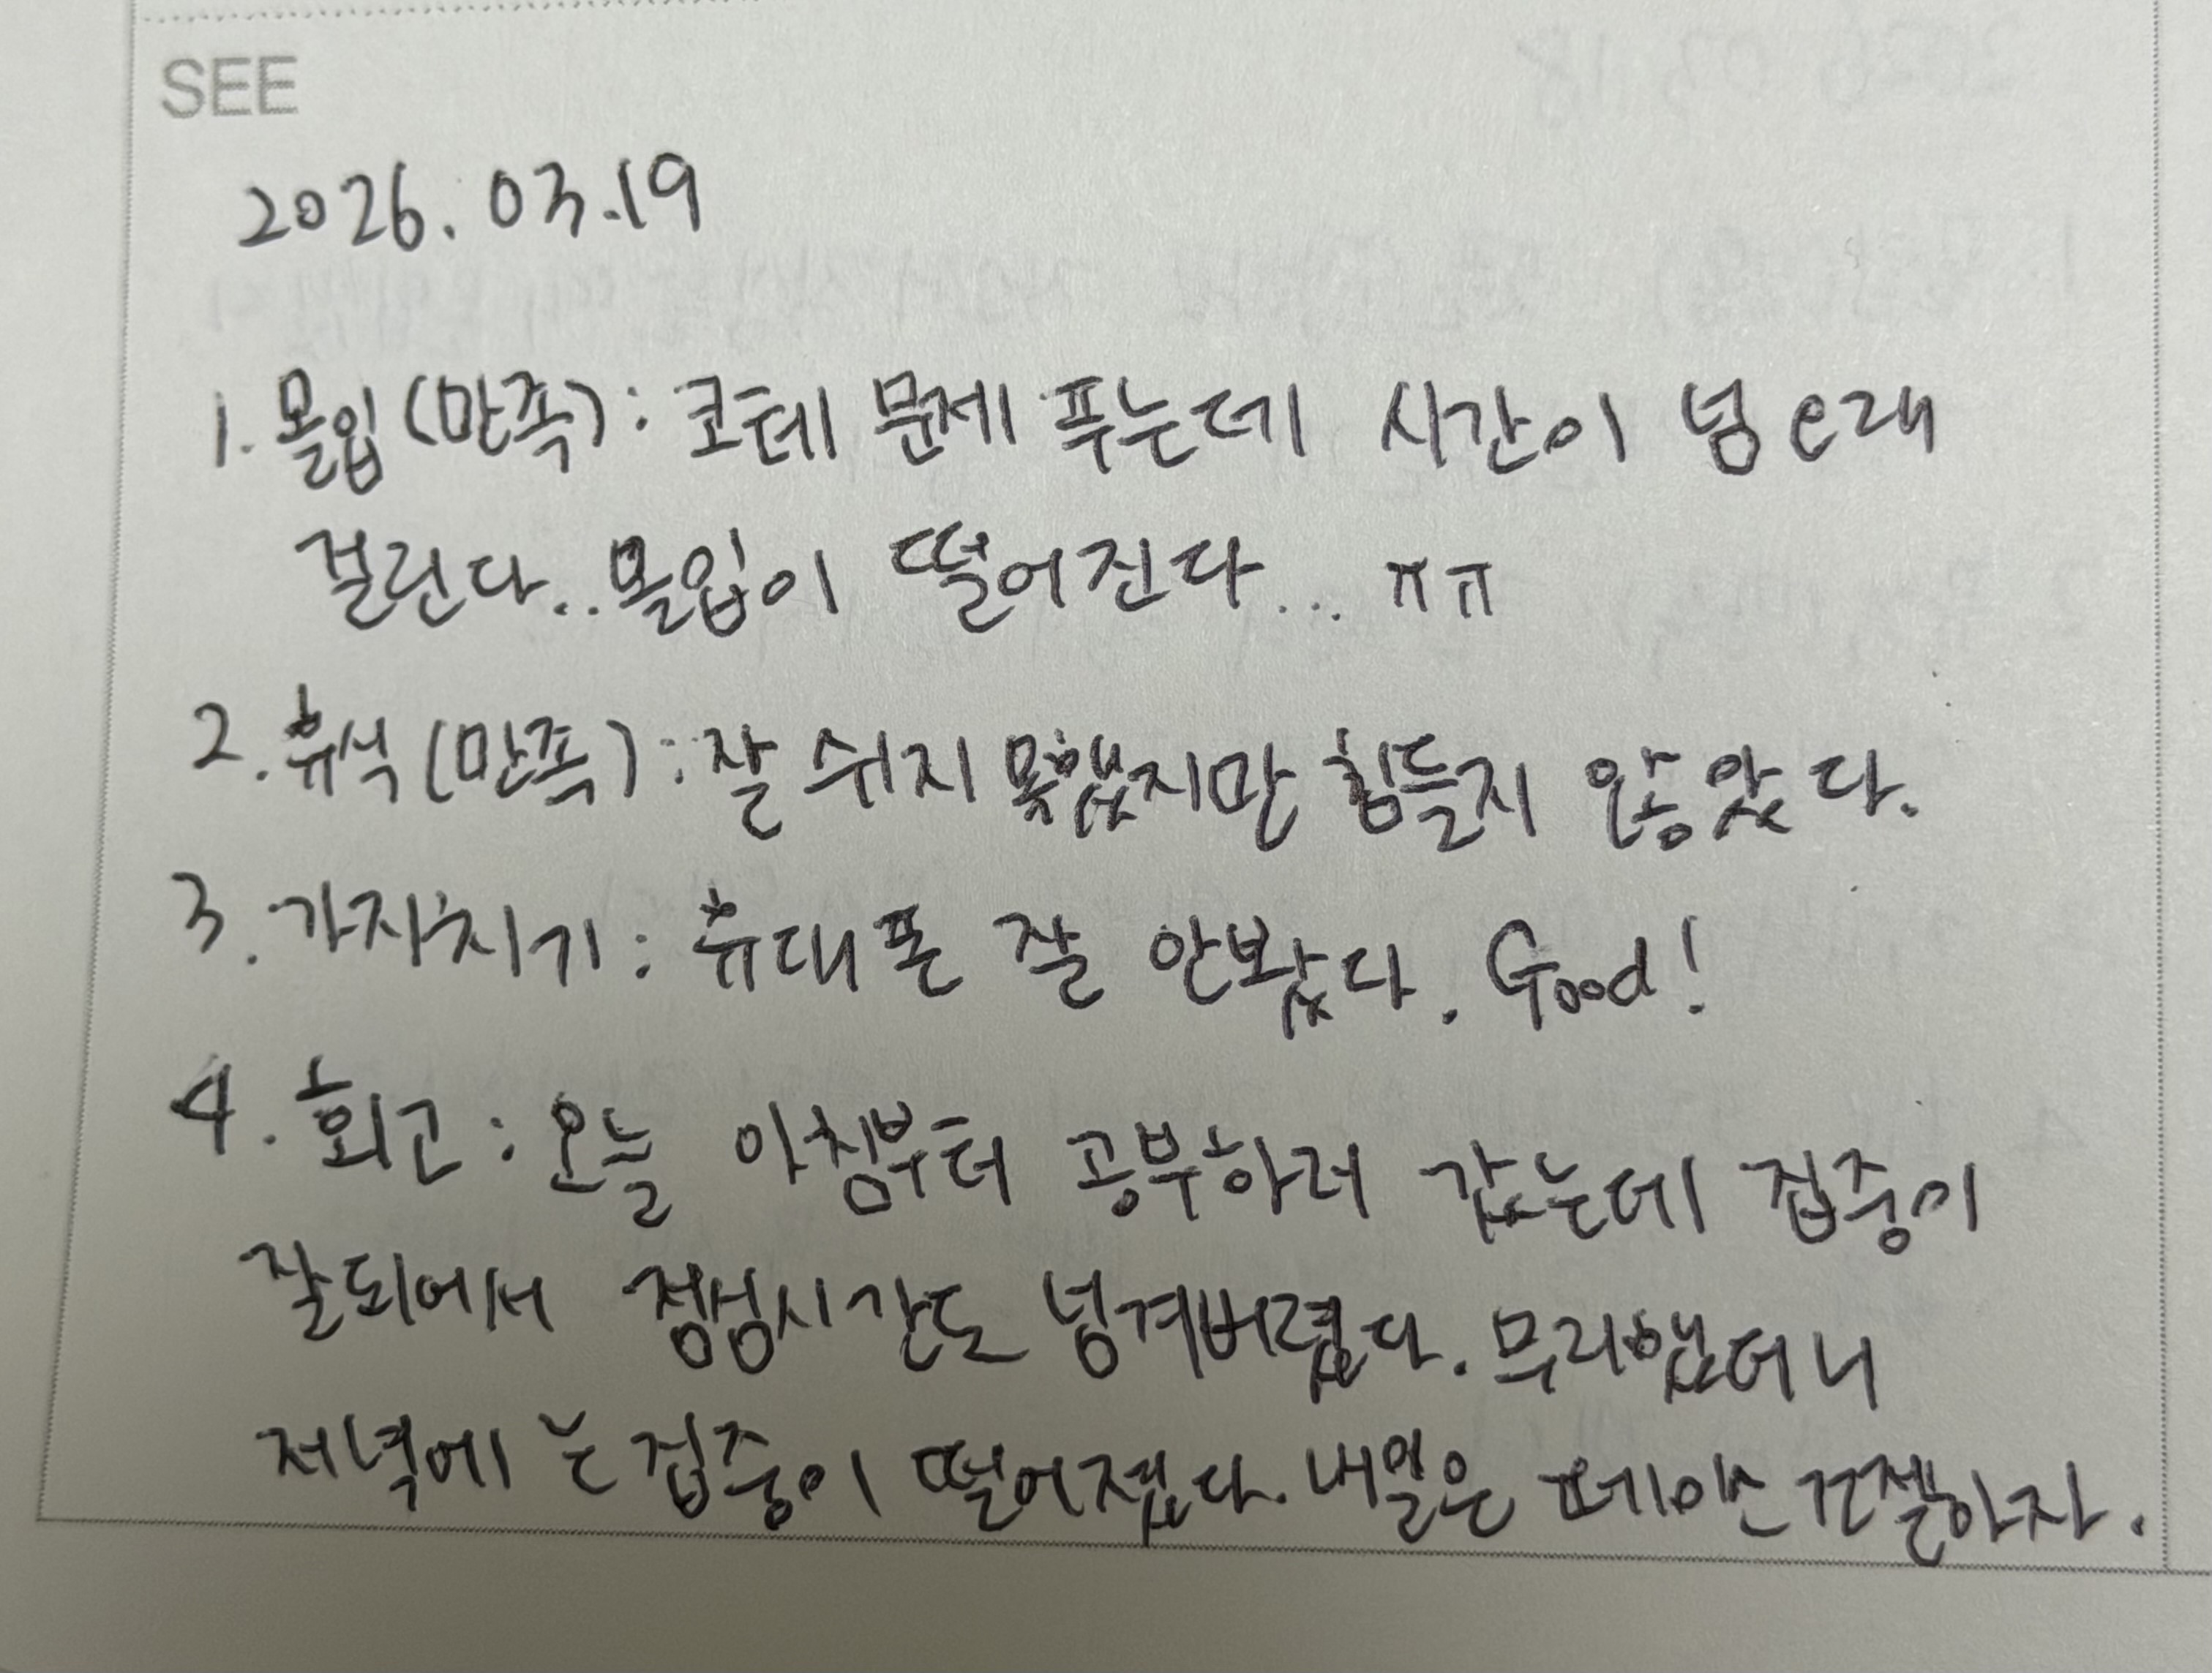 SEE
2026. 03. 19
1. 몰입(만족): 코테 문제 푸는데 시간이 넘 오래
걸린다.. 몰입이 떨어진다... ㅠㅠ
2. 휴식(만족): 잘 쉬지 못했지만 힘들지 않았다.
3. 가지치기: 휴대폰 잘 안봤다. Good!
4. 회고: 오늘 아침부터 공부하러 갔는데 집중이
잘되어서 점심시간도 넘겨버렸다. 무리했더니
저녁에는 집중이 떨어졌다. 내일은 페이스 조절하자.